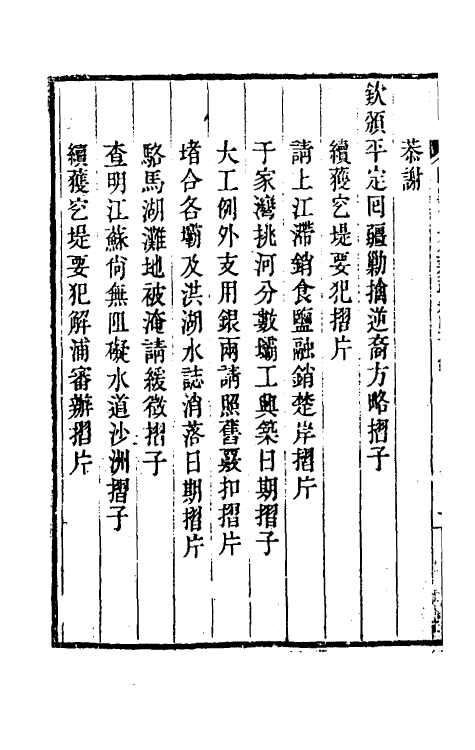 恭謝
欽頒平定回疆勦擒逆裔方略摺子
續獲空堤要犯摺片
請上江滯銷食鹽融銷楚岸摺片
于家灣挑河分數壩工興築日期摺子
大工例外支用銀兩請照舊覈扣摺片
堵合各壩及洪湖水誌消落日期摺片
駱馬湖灘地被淹請緩徵摺子
查明江蘇尙無阻礙水道沙洲摺子
續獲空堤要犯解浦審辦摺片